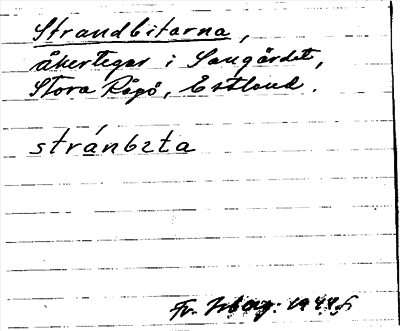 Strandbitarna,
åkertegar i Saugärdet,
Stora Rågö, Estland.
stránbɛta
Fr. 1944